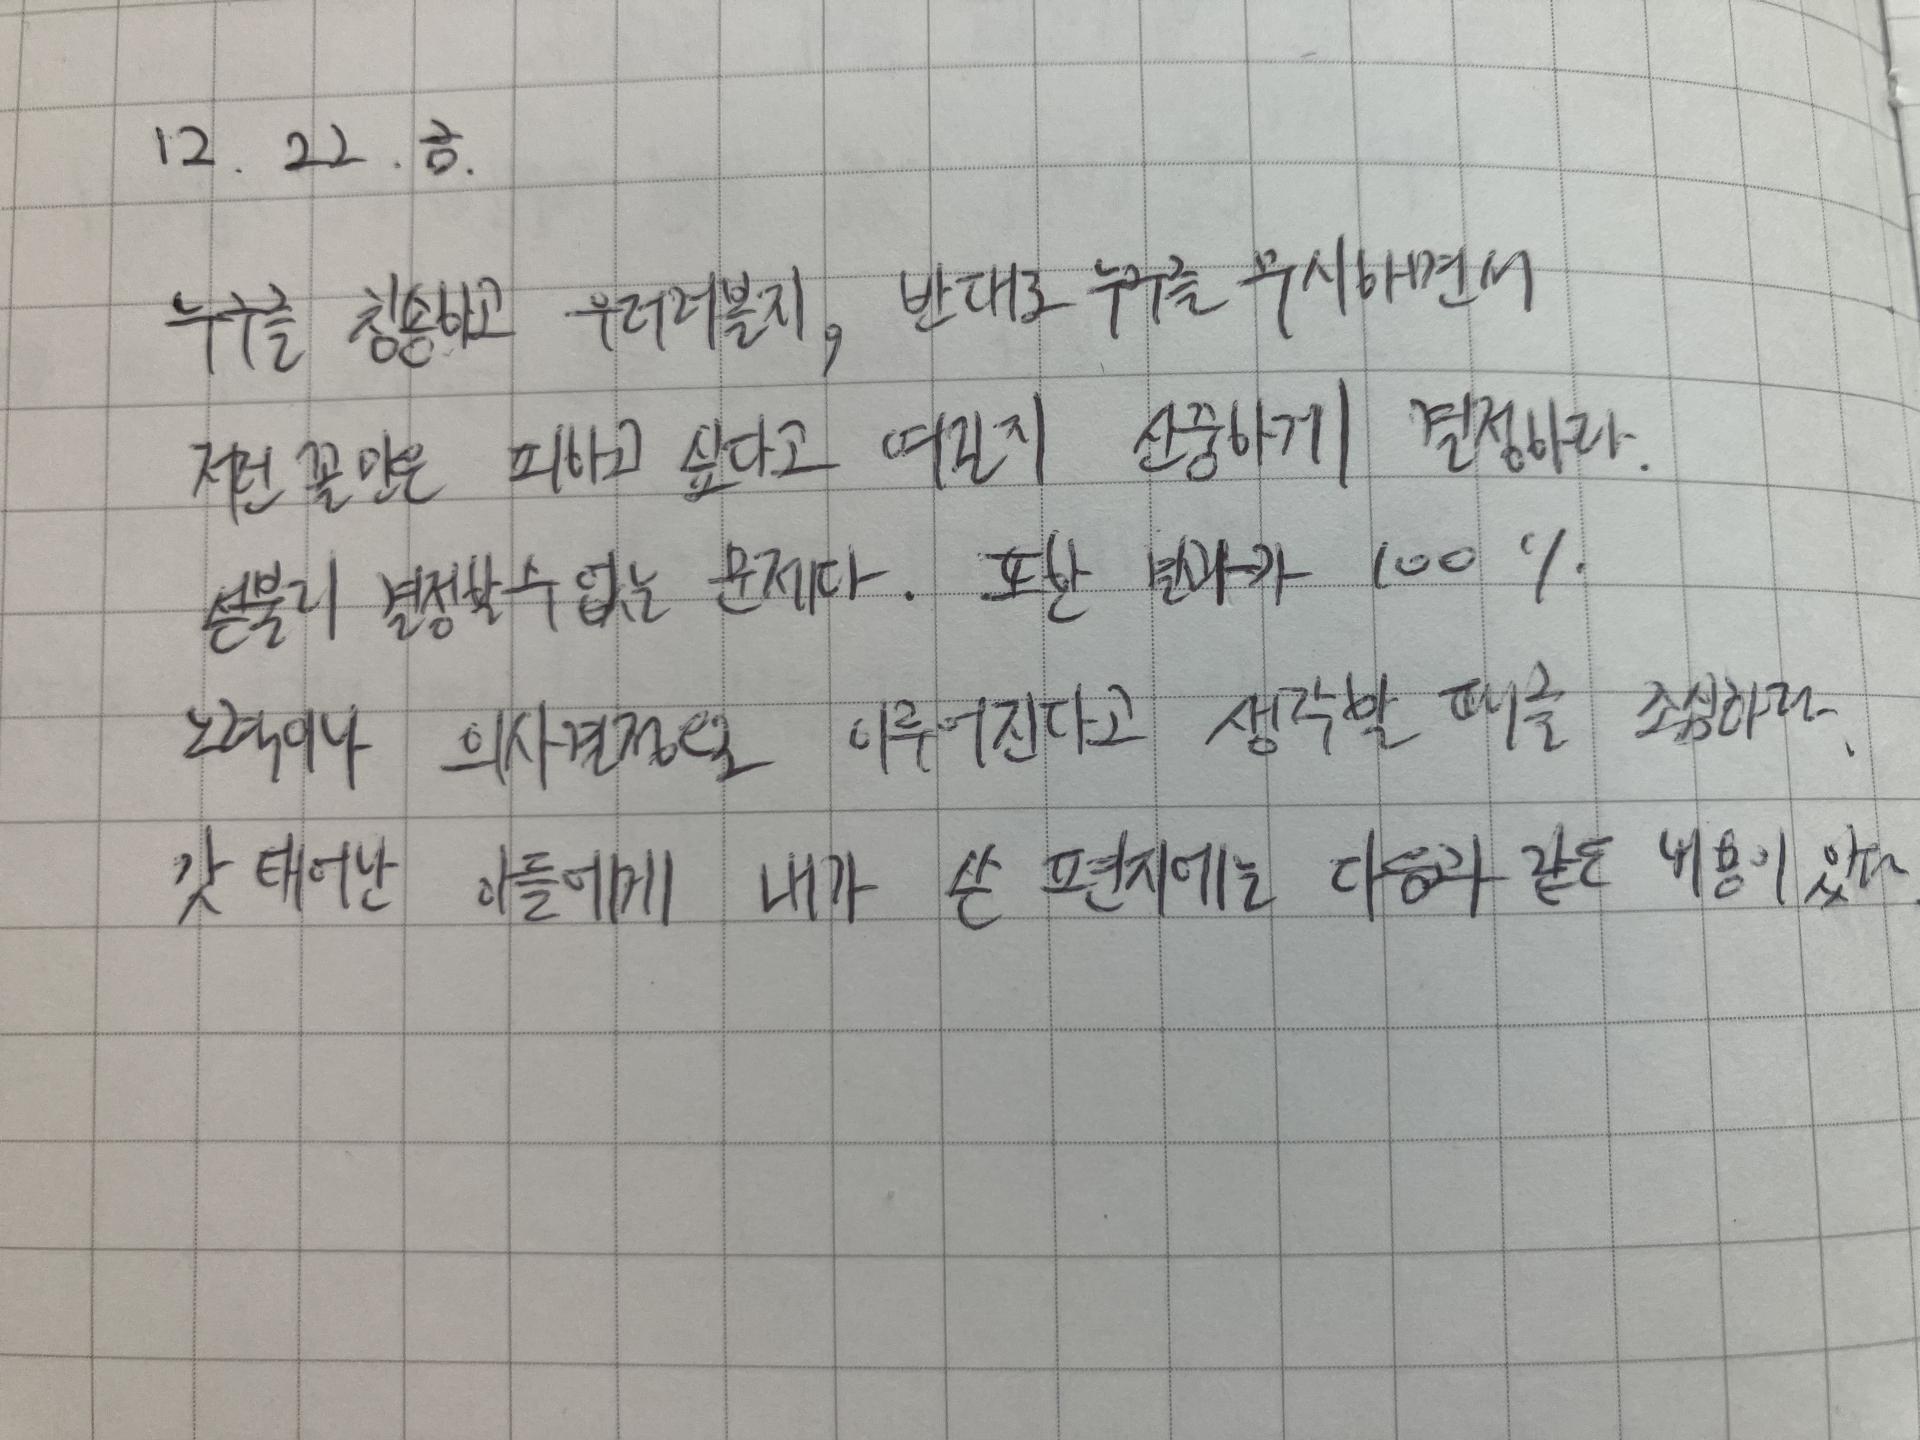 12. 22. 금.
누구를 칭송하고 우러러볼지, 반대로 누구를 무시하면서
저런 꼴만은 피하고 싶다고 여길지 신중하게 결정하라.
섣불리 결정할 수 없는 문제다. 또한 결과가 100 %
노력이나 의사결정으로 이루어진다고 생각할 때를 조심하라.
갓 태어난 아들에게 내가 쓴 편지에는 다음과 같은 내용이 있다.